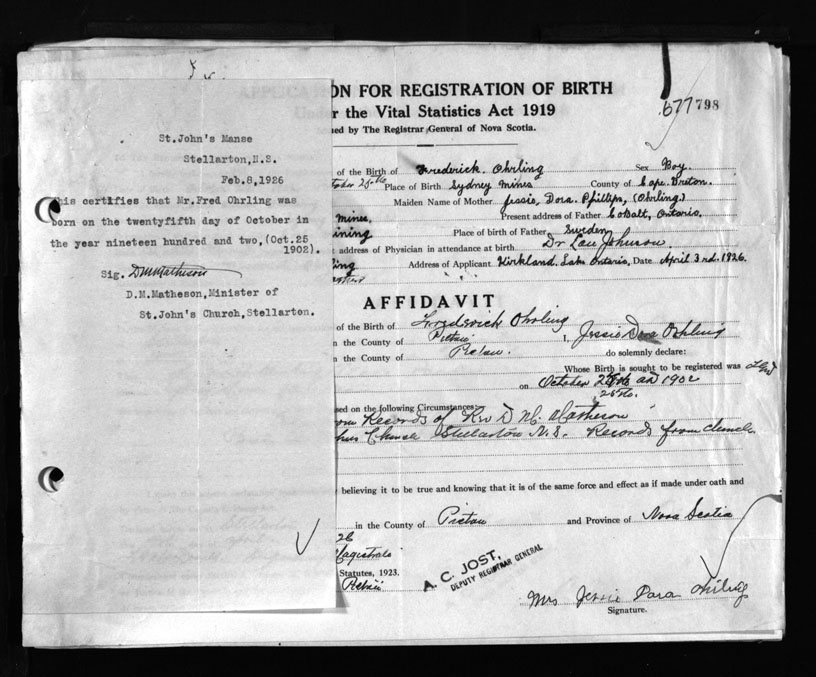 St.John's Manse
Stellarton,N.S.
Feb.8,1926
This certifies that Mr.Fred Ohrling was
born on the twentyfifth day of October in
the year nineteen hundred and two,(Oct.25
1902).
Sig. D.M.Matheson
D.M.Matheson,Minister of
St.John's Church,Stellarton.
ON FOR REGISTRATION OF BIRTH
r the Vital Statistics Act 1919
ued by The Registrar General of Nova Scotia.
677798
of the Birth of Frederick Ohrling Sex Boy.
Place of Birth Sydney Mines County of Cape Breton.
Maiden Name of Mother Jessie, Dora Phillips, (Ohrling)
Mines, Present address of Father Cobalt, Ontario.
ining Place of birth of Father Sweden
t address of Physician in attendance at birth Dr Johnson.
ling Address of Applicant Kirkland Lake Ontario, Date April 3rd. 1926.
AFFIDAVIT
of the Birth of Frederick Ohrling
n the County of Pictou I, Jessie Dora Ohrling
n the County of Pictou. do solemnly declare:
Whose Birth is sought to be registered was
on October 25th AD 1902
25th.
sed on the following Circumstances:
om Records of Rev D M Matheson
Church Stellarton N.S. Records from church
believing it to be true and knowing that it is of the same force and effect as if made under oath and
in the County of Pictou and Province of Nova Scotia
26
Magistrate
Statutes, 1923.
Pictou
A. C. JOST,
DEPUTY REGISTRAR GENERAL
Mrs Jessie Dora Ohrling
Signature.